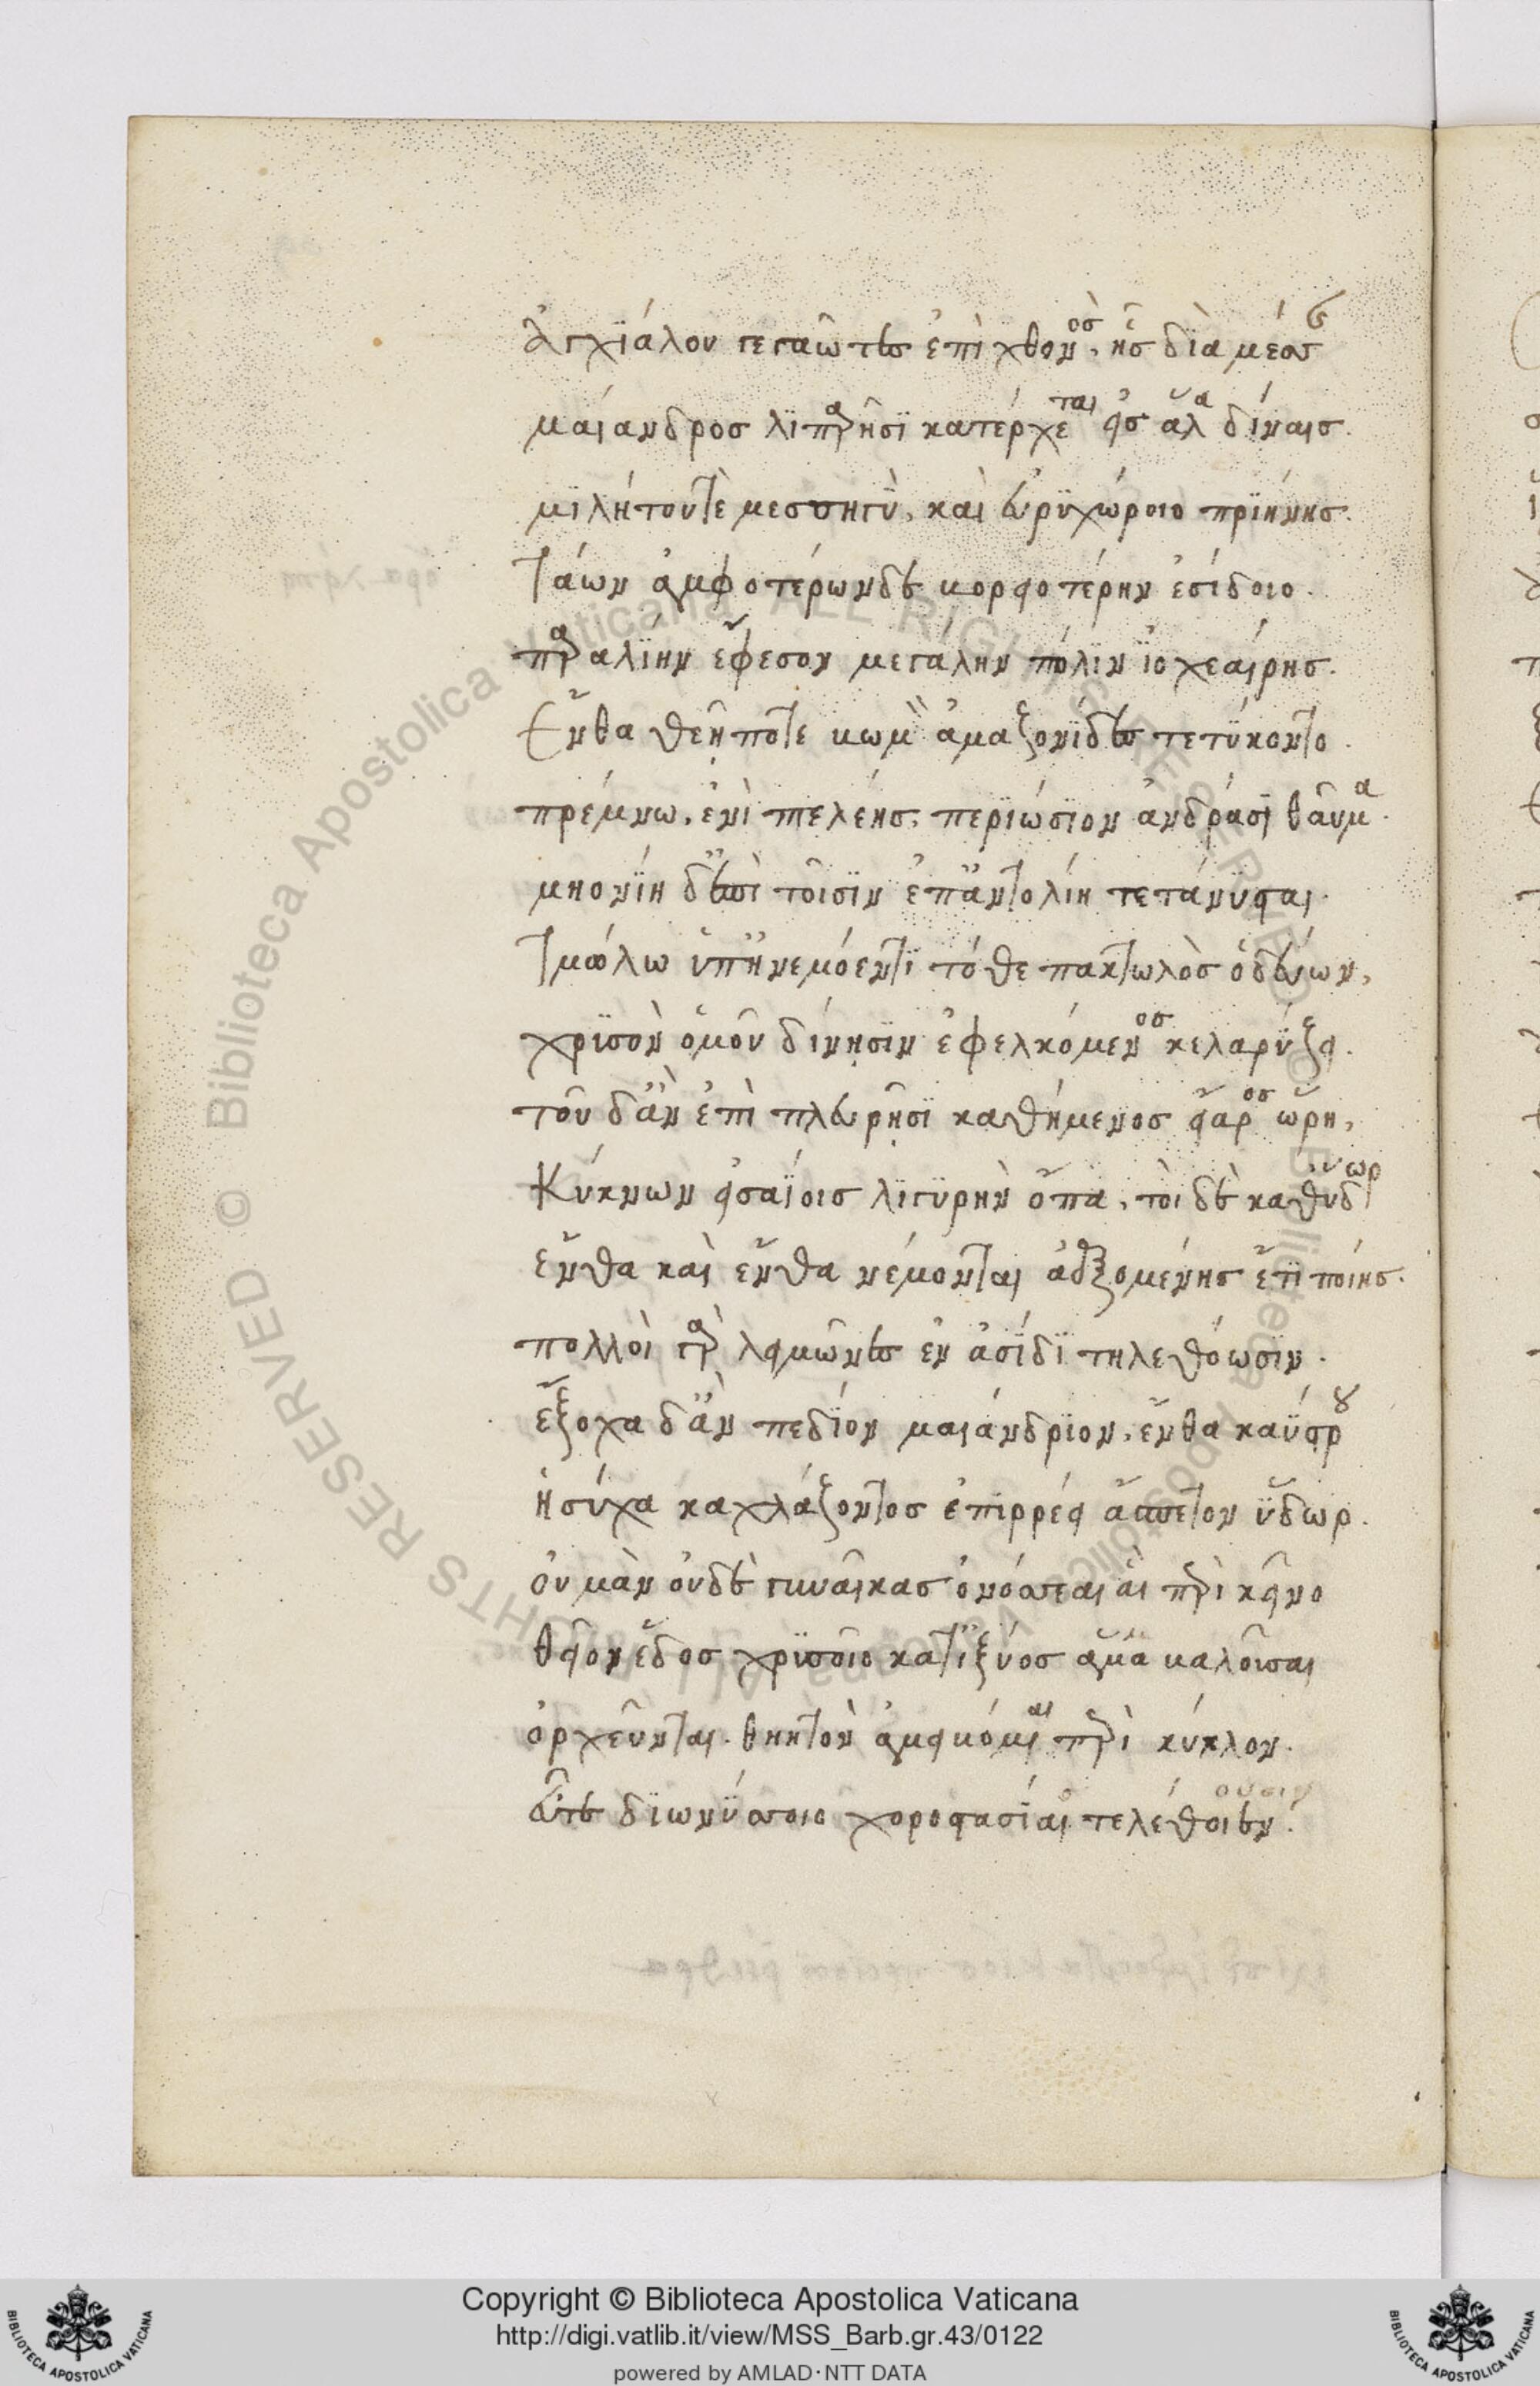 ἀγχϊάλου γεγαῶτες ἐπὶ χθονὸσ, ἧσ δϊὰ μέσσου
μαίανδροσ λϊπαρῆσϊ κατέρχεται εἰσ ἅλα δίναισ.
μϊλήτουτὲ μεσσηγὺ, καὶ εὐρϋχώροιο πρϊήνησ.
Τάων ἀμφοτέρωνδε βορφοτέρην ἐσίδοιο.
παραλΐην ἔφεσον μεγάλην πόλϊν ἰοχεαίρησ.
Ἔνθα θεῆ ποτε νηὸν ἀμαζονΐδες τετύκοντο.
πρέμνω, ἐνὶ πτελέησ, περϊώσϊον ἀνδράσϊ θαῦμα.
μηονΐη δ' ἐπὶ τοῖσϊν ἐπ' ἀντολίη τετάνϋσται.
Τμώλω ὑπ' ἠνεμόεντϊ τόθε πακτωλὸσ ὁδεύων,
χρϋσὸν ὁμοῦ δίνησϊν ἐφελκόμενοσ κελαρύζει.
τοῦ δ' ἂν ἐπὶ πλευρῆσϊ καθήμενοσ εἴαροσ ὥρη,
Κύκνων εἰσαΐοισ λϊγϋρὴν ὄπα, τοὶ δὲ καθ' ὕδωρ
ἔνθα καὶ ἔνθα νέμονται ἀεξομένησ ἔτϊ ποίησ.
πολλοὶ γὰρ λειμῶνες ἐν ἀσΐδϊ τηλεθόωσϊν.
ἔξοχα δ' ἂν πεδΐον μαιάνδρϊον, ἔνθα καΰστρου
ἡσύχα καχλάζοντοσ ἐπιρρέει ἄσπετον ὕδωρ.
οὐ μὰν οὐδὲ γυναῖκασ ὀνόσσεαι αἳ περὶ κεῖνο
θεῖον ἕδοσ χρϋσοῖο κατ' ἰξύοσ ἅμμα βαλοῦσαι
ὀρχεῦνται. θηητὸν ἑλισσόμεναι περὶ κύκλον.
εὖτε δϊωνύσσοιο χοροστασΐαι τελέθοιεν.
ουσιν